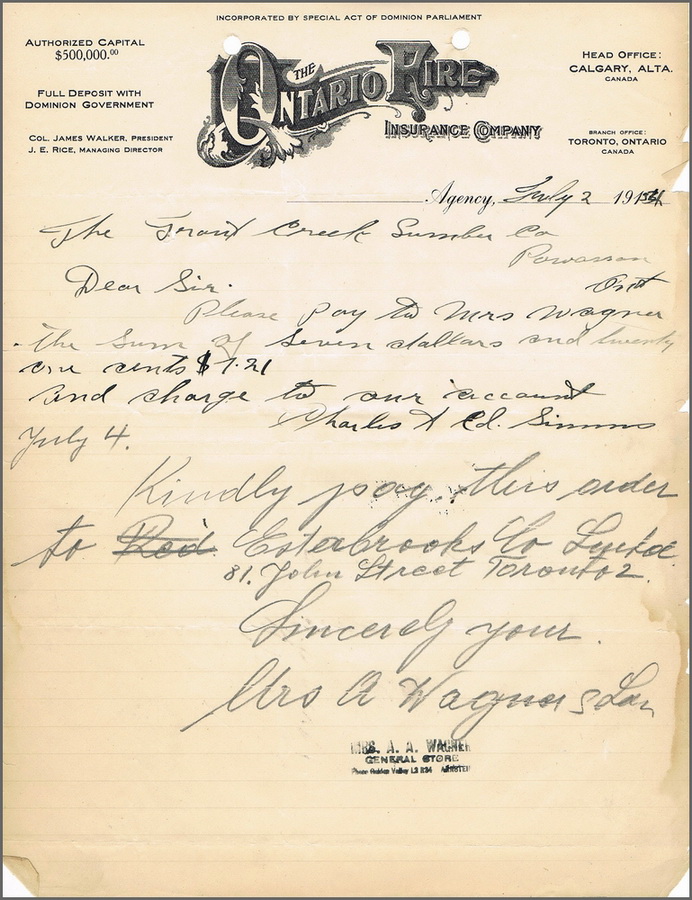 INCORPORATED BY SPECIAL ACT OF DOMINION PARLIAMENT
AUTHORIZED CAPITAL
$500,000.00
FULL DEPOSIT WITH
DOMINION GOVERNMENT
COL. JAMES WALKER, PRESIDENT
J. E. RICE, MANAGING DIRECTOR
THE ONTARIO FIRE
INSURANCE COMPANY
HEAD OFFICE:
CALGARY, ALTA.
CANADA
BRANCH OFFICE:
TORONTO, ONTARIO
CANADA
Agency, July 2 19
The Creek Lumber Co
Powassan
Ont
Dear Sir.
Please pay to Mrs Wagner
the sum of seven dollars and twenty
one cents $7.21
and charge to our account
Charles & Ed. Simms
July 4.
Kindly pay this order
to Red. Esterbrooks Co
81. John Street Toronto 2.
Sincerely your.
Mrs A Wagner &
MRS. A. A. WAGNER
GENERAL STORE
Phone Golden Valley L2 R34